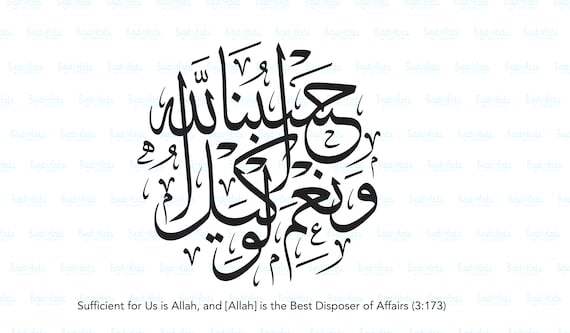 حسبنا الله
ونعم الوكيل
Sufficient for Us is Allah, and [Allah] is the Best Disposer of Affairs (3:173)